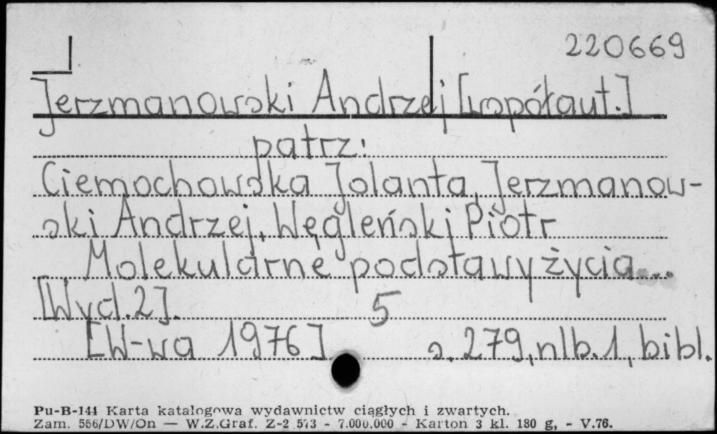 220669
Jerzmanowski Andrzej [współaut.]
patrz:
Ciemochowska Jolanta, Jerzmanow-
ski Andrzej, Węgleński Piotr
Molekularne podstawy życia...
[Wyd.2]. 5
[W-wa 1976] s. 279, nlb. 1, bibl.
Pu-B-144 Karta katalogowa wydawnictw ciągłych i zwartych.
Zam. 556/DW/On — W.Z.Graf. Z-2 573 - 7.000.000 - Karton 3 kl. 180 g, - V.76.